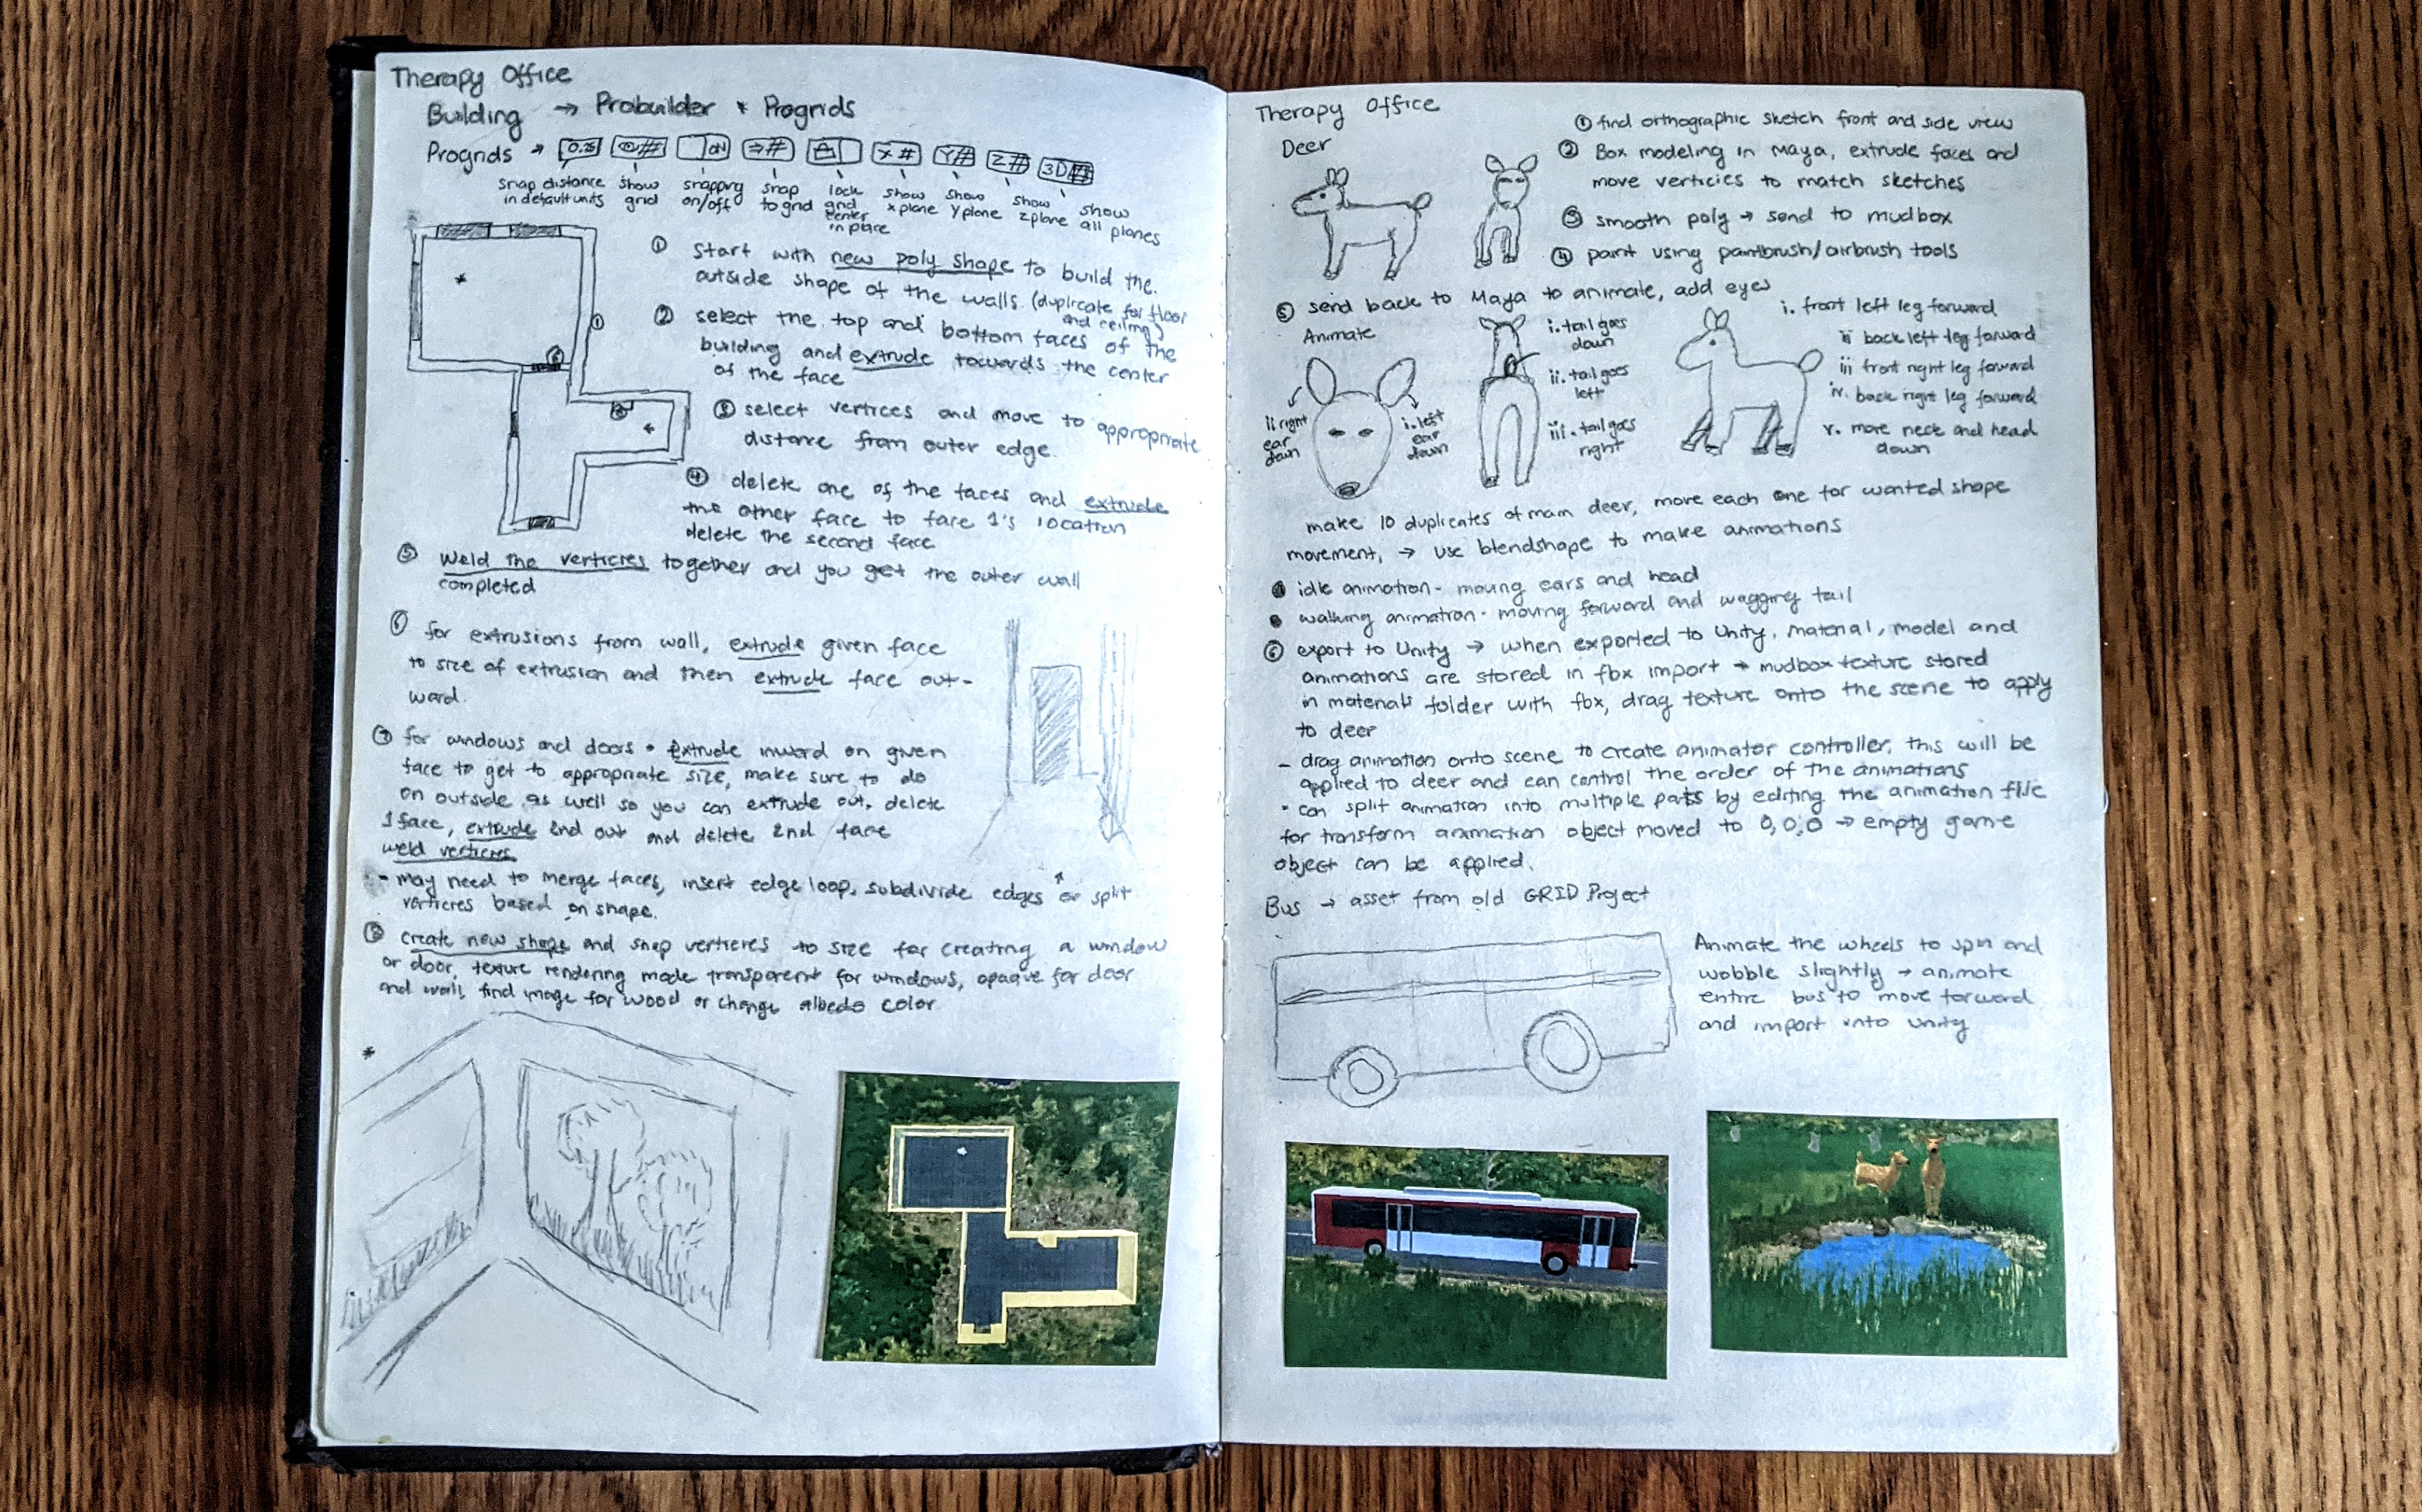 Therapy Office
Building → Probuilder + Progrids
Progrids → 0.25 # ON # X # Y # Z # 3D #
snap distance in default units
show grid
snapping on/off
snap to grid
lock grid center in place
show x plane
show y plane
show z plane
show all planes
① Start with new poly shape to build the
outside shape of the walls. (duplicate for floor
and ceiling)
② select the top and bottom faces of the
building and extrude towards the center
of the face
③ select vertices and move to appropriate
distance from outer edge.
④ delete one of the faces and extrude
the other face to face 1's location
delete the second face
⑤ Weld the verticies together and you get the outer wall
completed
⑥ for extrusions from wall, extrude given face
to size of extrusion and then extrude face out-
ward.
⑦ for windows and doors • extrude inward on given
face to get to appropriate size, make sure to do
on outside as well so you can extrude out, delete
1 face, extrude 2nd out and delete 2nd face
weld verticies
- may need to merge faces, insert edge loop, subdivide edges or split
verticies based on shape.
⑧ create new shape and snap verticies to size for creating a window
or door, texture rendering mode transparent for windows, opaque for door
and wall, find image for wood or change albedo color
*
Therapy Office
Deer
① find orthographic sketch front and side view
② Box modeling in Maya, extrude faces and
move verticies to match sketches
③ smooth poly → send to mudbox
④ paint using paintbrush/airbrush tools
⑤ send back to Maya to animate, add eyes
Animate
ii right ear down
i. left ear down
i. tail goes down
ii. tail goes left
iii. tail goes right
i. front left leg forward
ii back left leg forward
iii front right leg forward
iv. back right leg forward
v. move neck and head
down
make 10 duplicates of main deer, move each one for wanted shape
movement, → use blendshape to make animations
• idle animation - moving ears and head
• walking animation - moving forward and wagging tail
⑥ export to Unity → when exported to Unity, material, model and
animations are stored in fbx import → mudbox texture stored
in materials folder with fbx, drag texture onto the scene to apply
to deer
- drag animation onto scene to create animator controller, this will be
applied to deer and can control the order of the animations
- can split animation into multiple parts by editing the animation file
for transform animation object moved to 0,0,0 → empty game
object can be applied.
Bus → asset from old GRID Project
Animate the wheels to spin and
wobble slightly → animate
entire bus to move forward
and import into unity